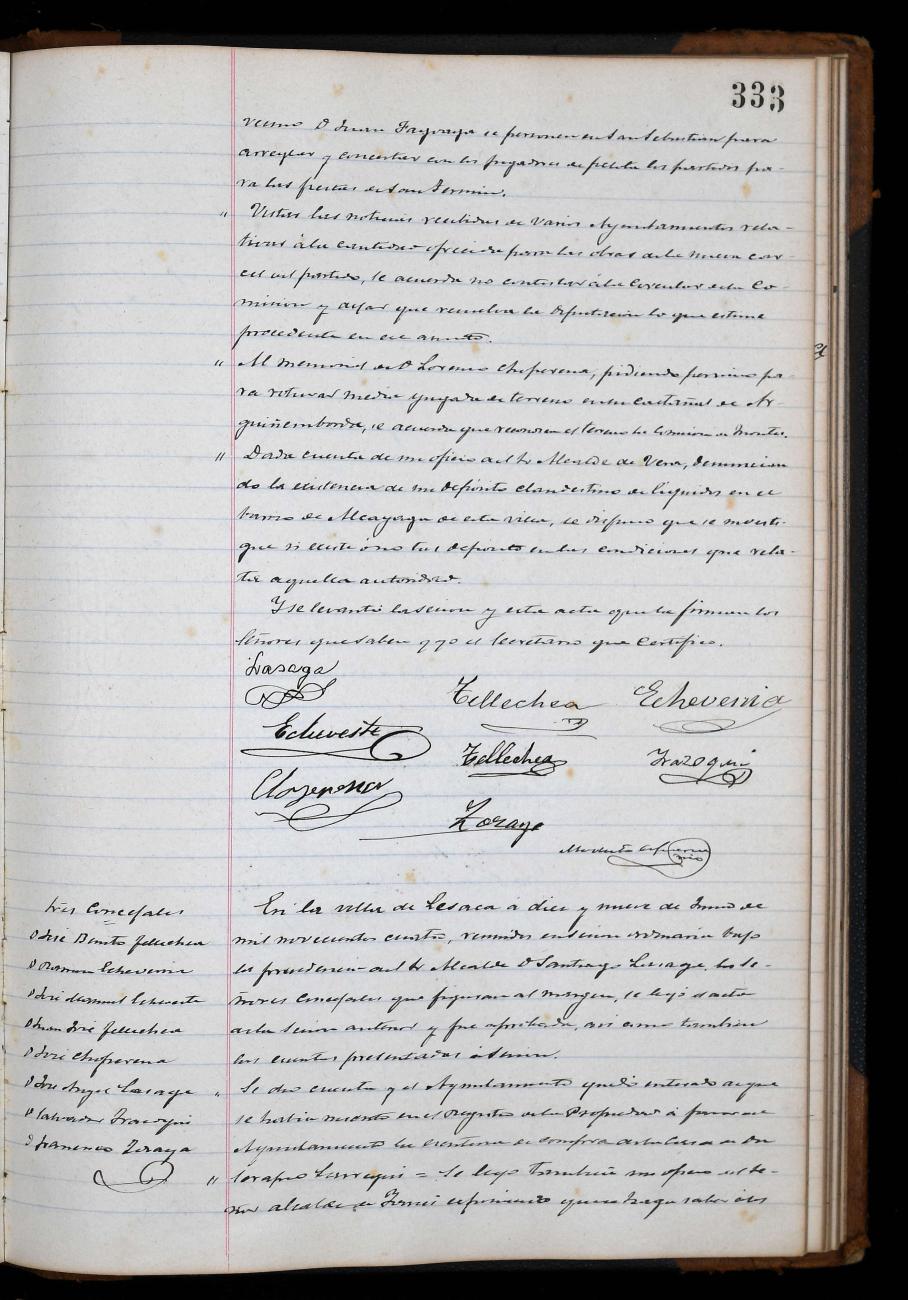 333
vecino D Juan Fagoaga se personen en San Sebastian para
arreglar y concertar con los jugadores de pelota los partidos pa-
ra las fiestas de San Fermin.
" Vistas las noticias recibidas de varios Ayuntamientos rela-
tivas á la cantidad ofrecida para las obras de la nueva car-
cel del partido, se acuerda no contestar á la Circular de la Co-
mision y dejar que resuelva la Diputacion lo que estime
procedente en ese asunto.
" Al memorial de D Lorenzo Choperena, pidiendo permiso pa-
ra roturar media yugada de terreno en su castañal de Ar-
guiñemborda, se acuerda que reconozca el terreno la Comision de Montes.
" Dada cuenta de un oficio del Sr Alcalde de Vera, denuncian
do la existencia de un depósito clandestino de liquidos en el
barrio de Alcayaga de esta villa, se dispuso que se investi-
gue si existe ó no tal deposito en las condiciones que rela-
ta aquella autoridad.
Y se levantó la sesion y esta acta que la firman los
Señores que saben y yo el Secretario que Certifico.
Lasaga
Tellechea Echeverria
Echeveste
Tellechea Irazoqui
Choperena
Zozaya
tres Concejales
D José Benito Tellechea
D Ramon Echeverria
D José Manuel Echeveste
D Juan José Tellechea
D José Choperena
D José Angel Lasaga
D Salvador Irazoqui
D Francisco Zozaya
En la villa de Lesaca á diez y nueve de Junio de
mil novecientos cuatro, reunidos en sesion ordinaria bajo
la presidencia del Sr Alcalde D Santiago Lasaga, los Se-
ñores Concejales que figuran al margen, se leyó el acta
de la sesion anterior y fue aprobada, asi como tambien
las cuentas presentadas á sesion.
" Se dio cuenta y el Ayuntamiento quedó enterado de que
se habia inscrito en el Registro de la Propiedad á favor del
Ayuntamiento la escritura de compra de la casa de Dn
" Serapio Larregui = Se leyo tambien un oficio del Se-
ñor alcalde de exponiendo que se haga saber á los